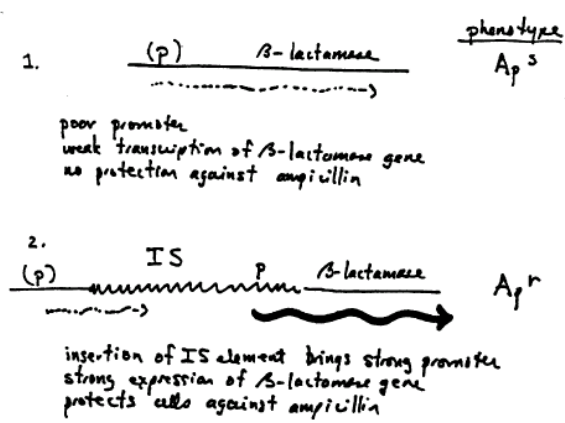 phenotype
1. (p) β-lactamase Ap^s
poor promoter
weak transcription of β-lactamase gene
no protection against ampicillin
2.
IS
(p) p β-lactamase Ap^r
insertion of IS element brings strong promoter
strong expression of β-lactamase gene
protects cells against ampicillin